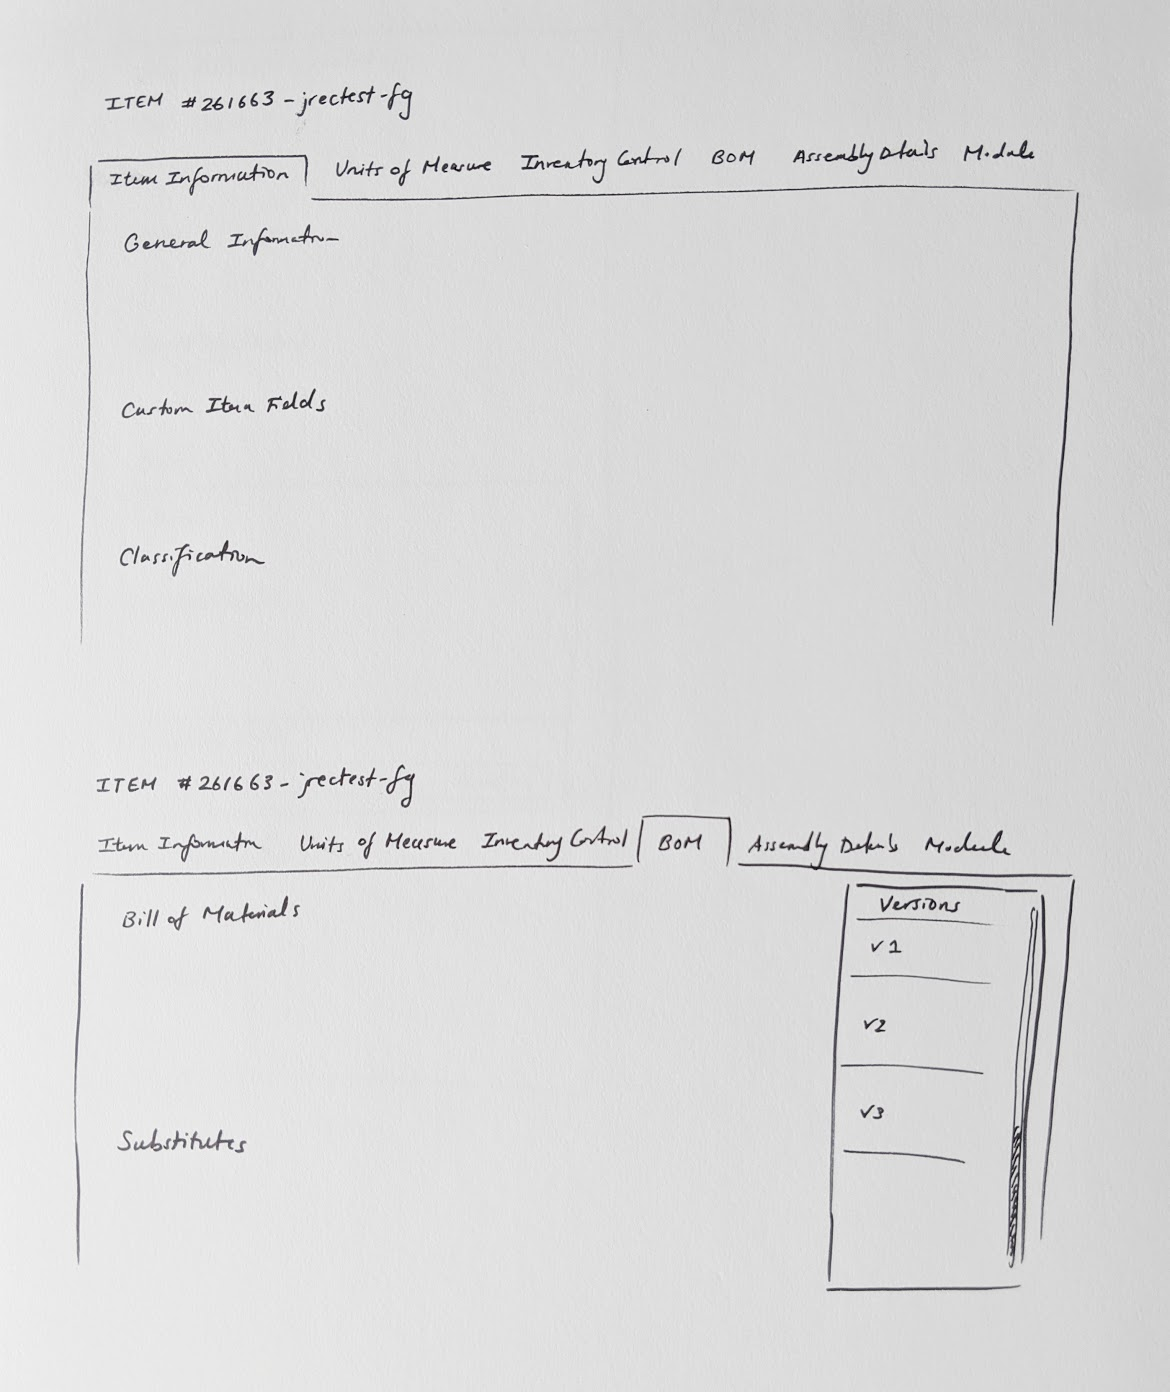 ITEM #261663-jrectest-fg
Item Information Units of Measure Inventory Control BOM Assembly Details Module
General Information
Custom Item Fields
Classification
ITEM #261663-jrectest-fg
Item Information Units of Measure Inventory Control BOM Assembly Details Module
Bill of Materials
Versions
v1
v2
v3
Substitutes